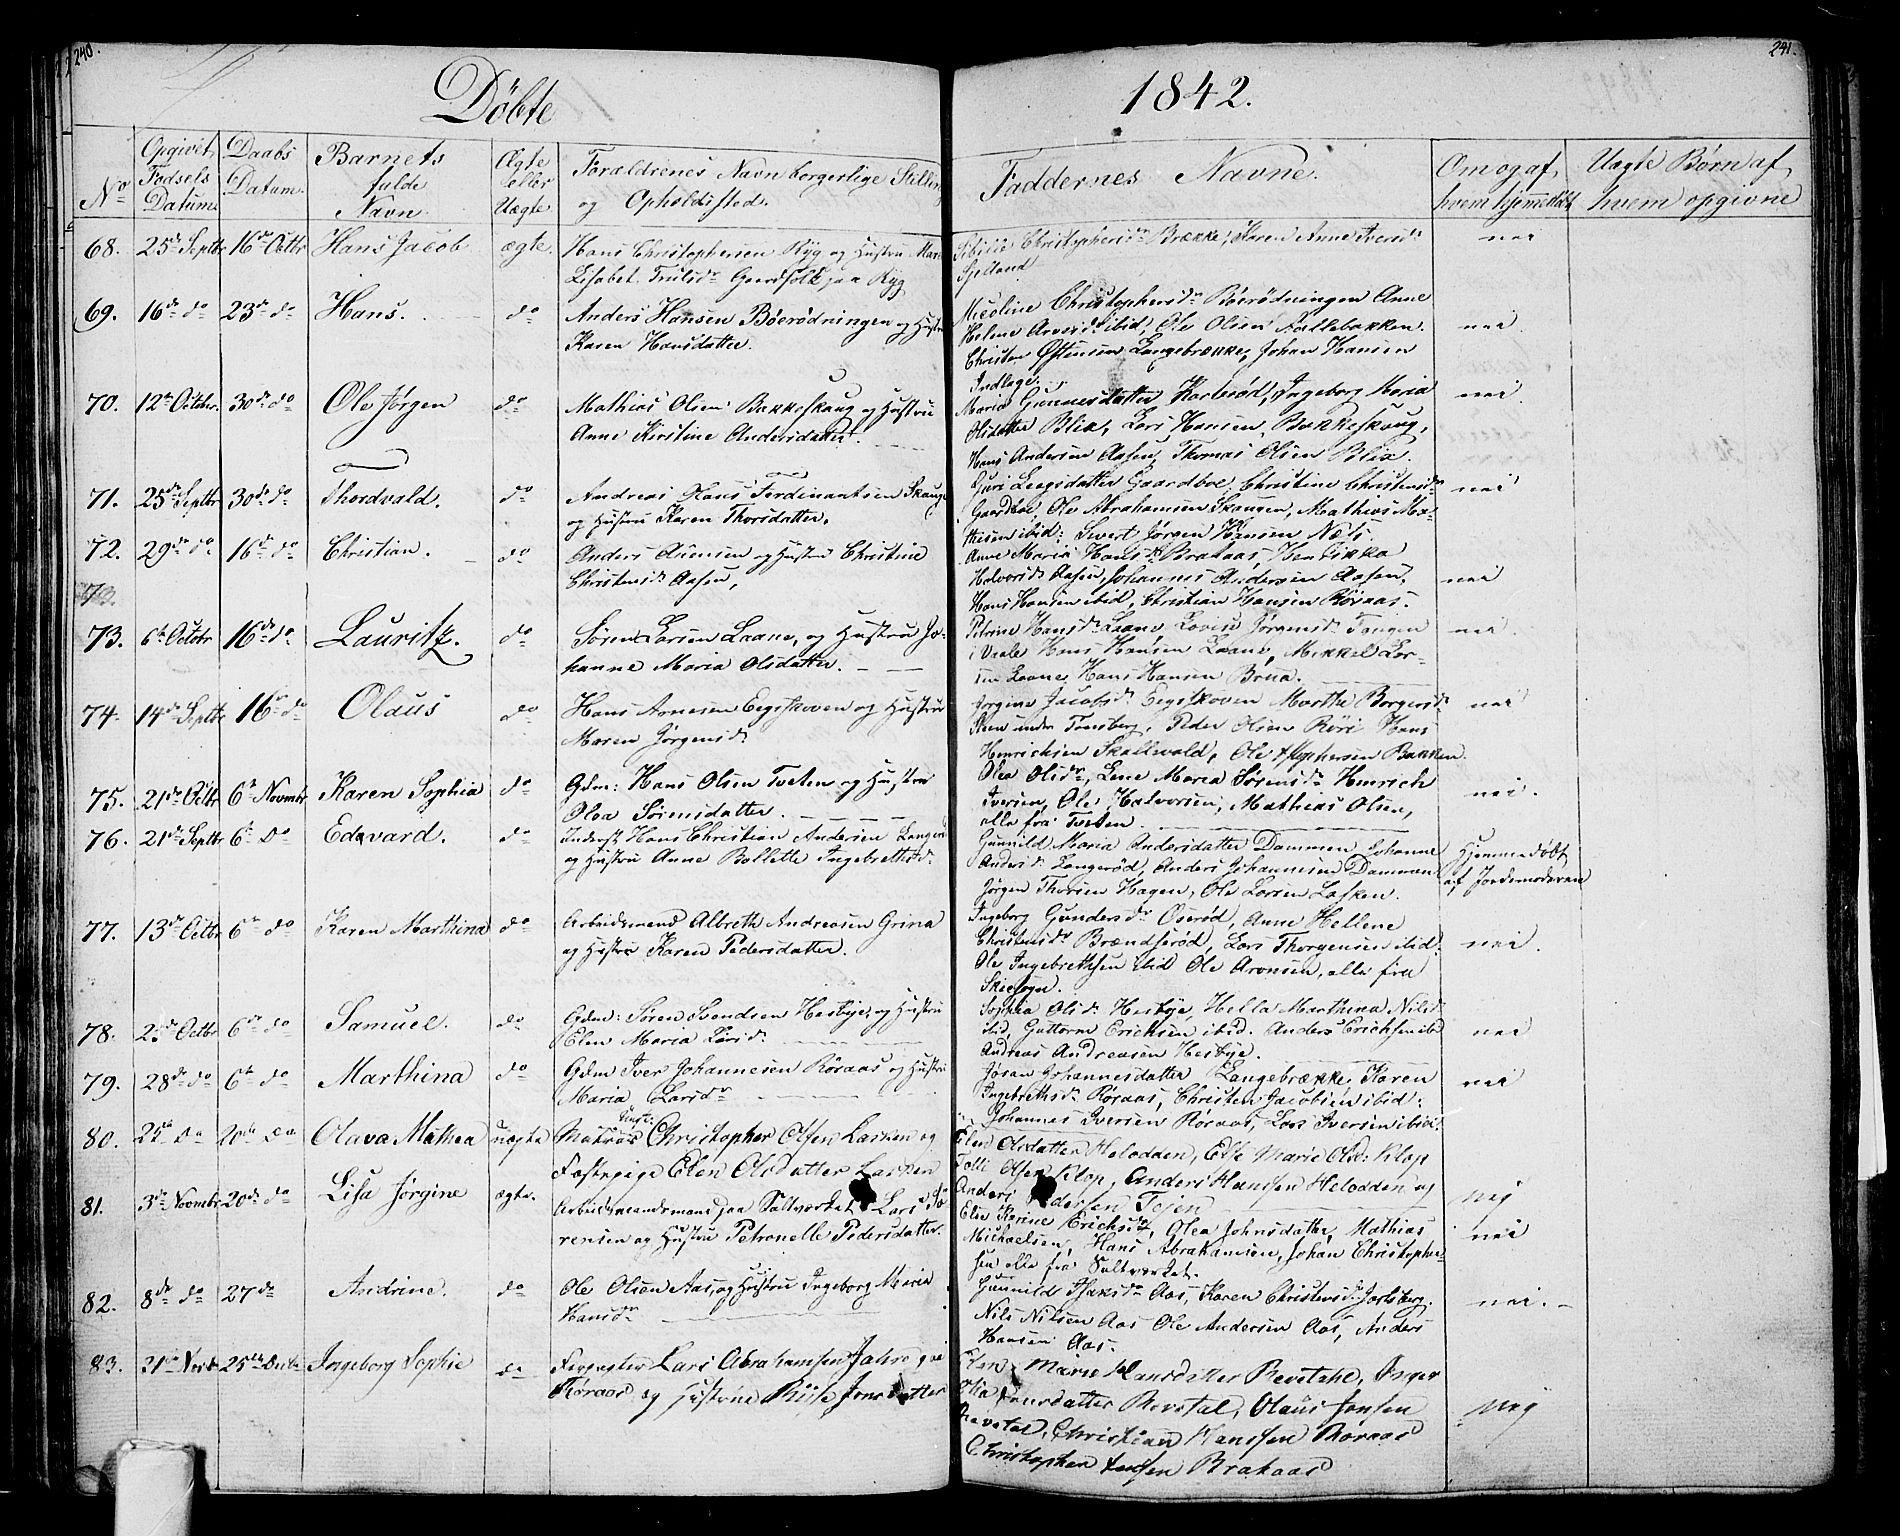 240.
241.
Döbte
1842.
No
Opgivet Födsels Datum
Daabs Datum
Barnets fulde Navn.
Ægte eller Uægte
Forældrenes Navn borgerlige Stilling og Opholdssted.
Faddernes Navne.
Om og af hvem hjemmedöbt
Uægte Børn af hvem opgivne
68. 25de Septbr 16de Octbr Hans Jacob ægte. Hans Christophersen Ryg og Hustru Maria
Lisabet Trulsdr Gaardfolk paa Ryg
Christophersdr Brække, Karen Anne Iversdr
Sjelland
nei
69. 16de do 23de do Hans. do Anders Hansen Böerödningen og Hustru
Karen Hansdatter.
Nicoline Christophersdr Böerödningen Anne
Helene Arvesdr ibid, Ole Olsen Faltebakken.
Christen Østensen Langebrække, Johan Hansen
Indlage.
nei.
70. 12te Octobr. 30de do Ole Jörgen do Mathias Olsen Bakkeskaug og Hustru
Anne Kirstine Andersdatter.
Maria Gunnersdatter Karlsröd, Ingeborg Maria
Olsdatter Blix, Lars Hansen Bakkeskaug,
Hans Andersen Aasen, Thomas Olsen Blix.
nei.
71. 25de Septbr 30de do Thordvald. do Andreas Hans Ferdinantsen Skaug
og Hustru Karen Thorsdatter.
Guri Leegsdatter Gaardboe, Christine Christensdr
Gaardboe, Ole Abrahamsen Skaugen, Mathias Ma-
thisen ibid: Sivert Jörgen Hansen Næs.
nei
72. 29de do 16de do Christian. do Anders Olsensen og Hustru Christine
Christensdr Aasen,
Anne Maria Hansdr Brakaas,
Halvorsdr Aasen, Johannes Andersen Aasen,
Hans Hansen ibid, Christian Hansen Röraas.
nei
73.
73. 6te Octobr 16de do Lauritz. do Sören Larsen Laane, og Hustru Jo-
hanne Maria Olsdatter.
Petrine Hansdr Laane Lovise Jörgensdr Tangen
i Vaale Hans Hansen Laane, Mikkel Lar-
sen Laane, Hans Hansen Brua.
nei.
74. 14de Septbr 16de do Olaus do Hans Arnesen Eegskoven og Hustru
Maren Jörgensdr
Jorgine Jacobsdr Eegskoven Marthe Borgersdr
Steen under Tonsberg, Peder Olsen Röri Hans
Henrichsen Skallevald, Ole Bakken.
nei
75. 21de Octbr 6te Novmbr. Karen Sophia do Gdm: Hans Olsen Tveten og Hustru
Olea Sörensdatter.
Olea Olsdr, Lene Maria Sörensdr Henrich
Iversen, Ole Halvorsen, Mathias Olsen,
alle fra Tveten
nei.
76. 21de Septbr 6te Do Edevard. do Inderst Hans Christian Andersen Langeröd
og Hustru Anne Bollette Ingebretsdr.
Gunnild Maria Andersdatter Dammen Johanne
Andersdr Langeröd, Anders Johannesen Dammen
Jörgen Thorsen Hagen, Ole Larsen Lasken.
Hjemmedöbt
af Jordemoderen
77. 13de Octbr 6te do Karen Marthina do Arbeidsmand Albreth Andreasen Grina
og Hustru Karen Pedersdatter.
Ingeborg Gundersdr Oseröd, Anne Hellene
Christensdr Brændseröd, Lars Thorgensen ibid.
Ole Ingebrethsen ibid Ole Aronsen, alle fra
Skiesogn.
nei.
78. 25de Octbr 6te do Samuel. do Gdm: Sören Svendsen Hesbye, og Hustru
Elen Maria Larsdr
Sophia Olsdr Hesbye, Hella Marthina Nilsdr
ibid, Guttorm Erichsen ibid. Anders Erichsen ibd
Andreas Andreasen Hesbye.
nei
79. 28de do 6te do Marthina do Gdm Iver Johannesen Röraas og Hustru
Maria Larsdr
Johannesdatter Langebrække, Karen
Ingebrethsdr Röraas, Christen Jacobsen ibid.
Johannes Iversen Röraas, Lars Iversen ibid.
nei
80. Do 20de Do Olava Mathea uægte Ungk: Matros Christopher Olsen Lasken og
Fæstepige Elen Olsdatter Lasken
Elen Olsdatter Helodden, Else Marie Olsd: Klop
Tolli Olsen Klop, Anders Hansen Helodden og
Anders Pedersen Tejen
Nej
81. 3de Novmbr 20de do Lisa Jörgine ægte. Arbeidsmandsmand paa Saltværket Lars Sö-
rensen og Hustru Petronelle Pedersdatter.
Else Karine Erichsdr, Olea Johnsdatter, Mathias
Michaelsen, Hans Abrahamsen, Johan Christopher-
sen alle fra Saltværket.
nei
82. 8de do 27de Andrine. do Ole Olsen Aas, og Hustru Ingeborg Maria
Hansdr
Gunnild Isaksdr Aas, Karen Christensdr Jarlsberg.
Nils Nilsen Aas Ole Andersen Aas, Anders
Hansen Aas.
nei.
83. 21de Novbr 25de Decbr Ingeborg Sophie do Forpagter Lars Abrahamsen Jahre paa
Röraas og Hustrue Riise Jonsdatter
Elen Marie Hansdatter Revetahl, Inger
Olia Jonsdatter Revetal, Olaus Jonsen
Revetal, Christian Hanssen Roraas
Christopher Jensen Brakaas
Nej